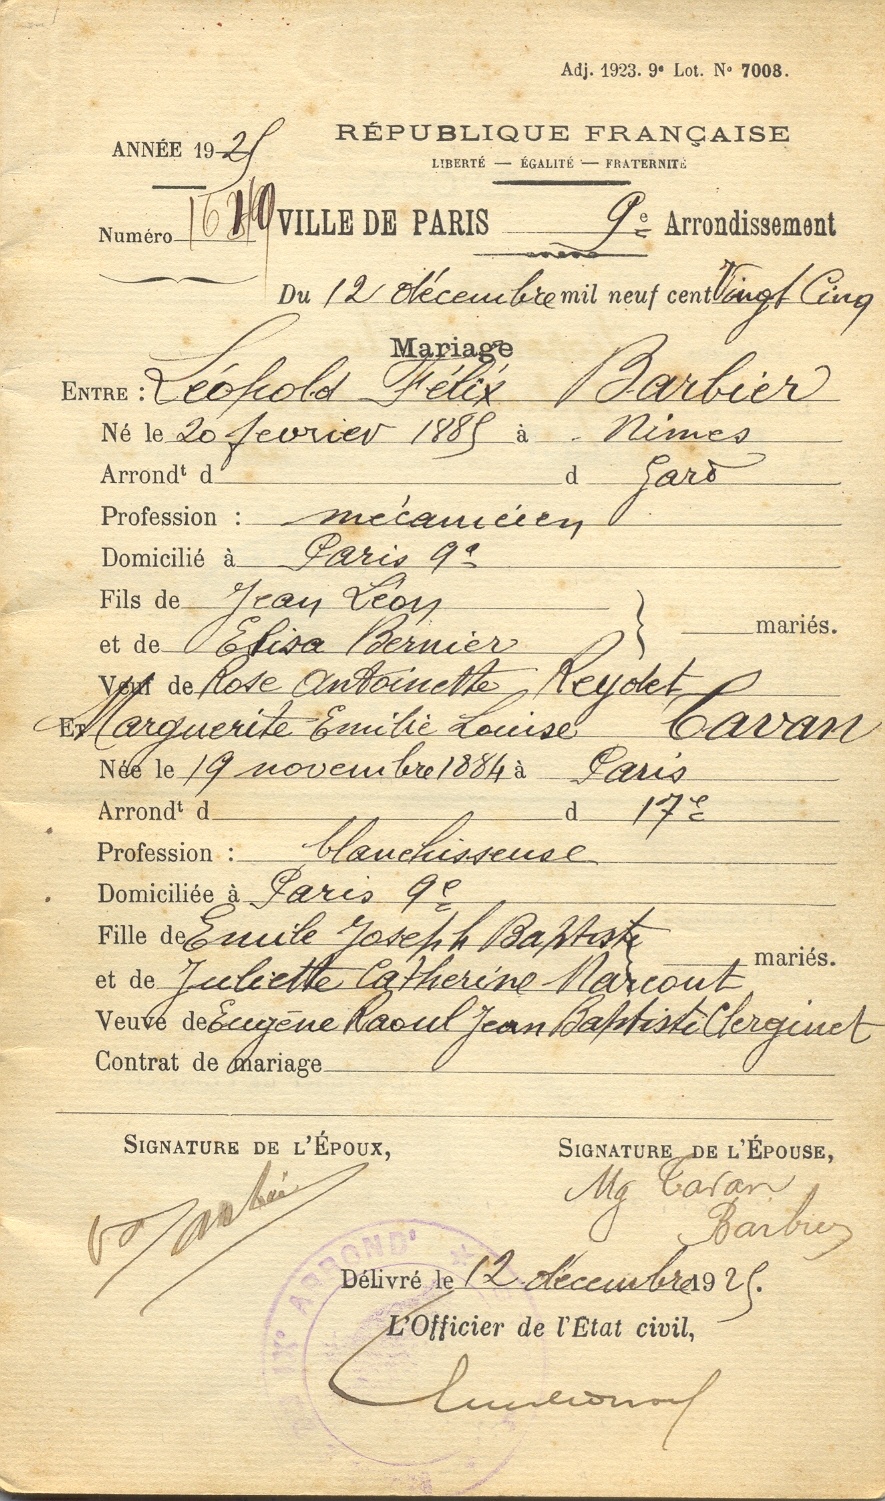 Adj. 1923. 9e Lot. No 7008.
ANNÉE 1925
RÉPUBLIQUE FRANÇAISE
LIBERTÉ — ÉGALITÉ — FRATERNITÉ
Numéro
VILLE DE PARIS 9e Arrondissement
Du 12 décembre mil neuf cent Vingt Cinq
Mariage
ENTRE : Léopold Félix Barbier
Né le 20 fevrier 1885 à Nimes
Arrondt d d Gard
Profession : mécanicien
Domicilié à Paris 9e
Fils de Jean Léon
et de Elisa Bernier mariés.
Veuf de Rose Antoinette Reydet
Et Marguerite Emilie Louise Tavan
Née le 19 novembre 1884 à Paris
Arrondt d d 17e
Profession : blanchisseuse
Domiciliée à Paris 9e
Fille de Emile Joseph Baptiste
et de Juliette Catherine Marcout mariés.
Veuve de Eugène Raoul Jean Baptiste Clerginet
Contrat de mariage
SIGNATURE DE L'ÉPOUX,
SIGNATURE DE L'ÉPOUSE,
Mg Tavan
Barbier
Délivré le 12 décembre 1925.
L'Officier de l'État civil,
IXe ARRONDt